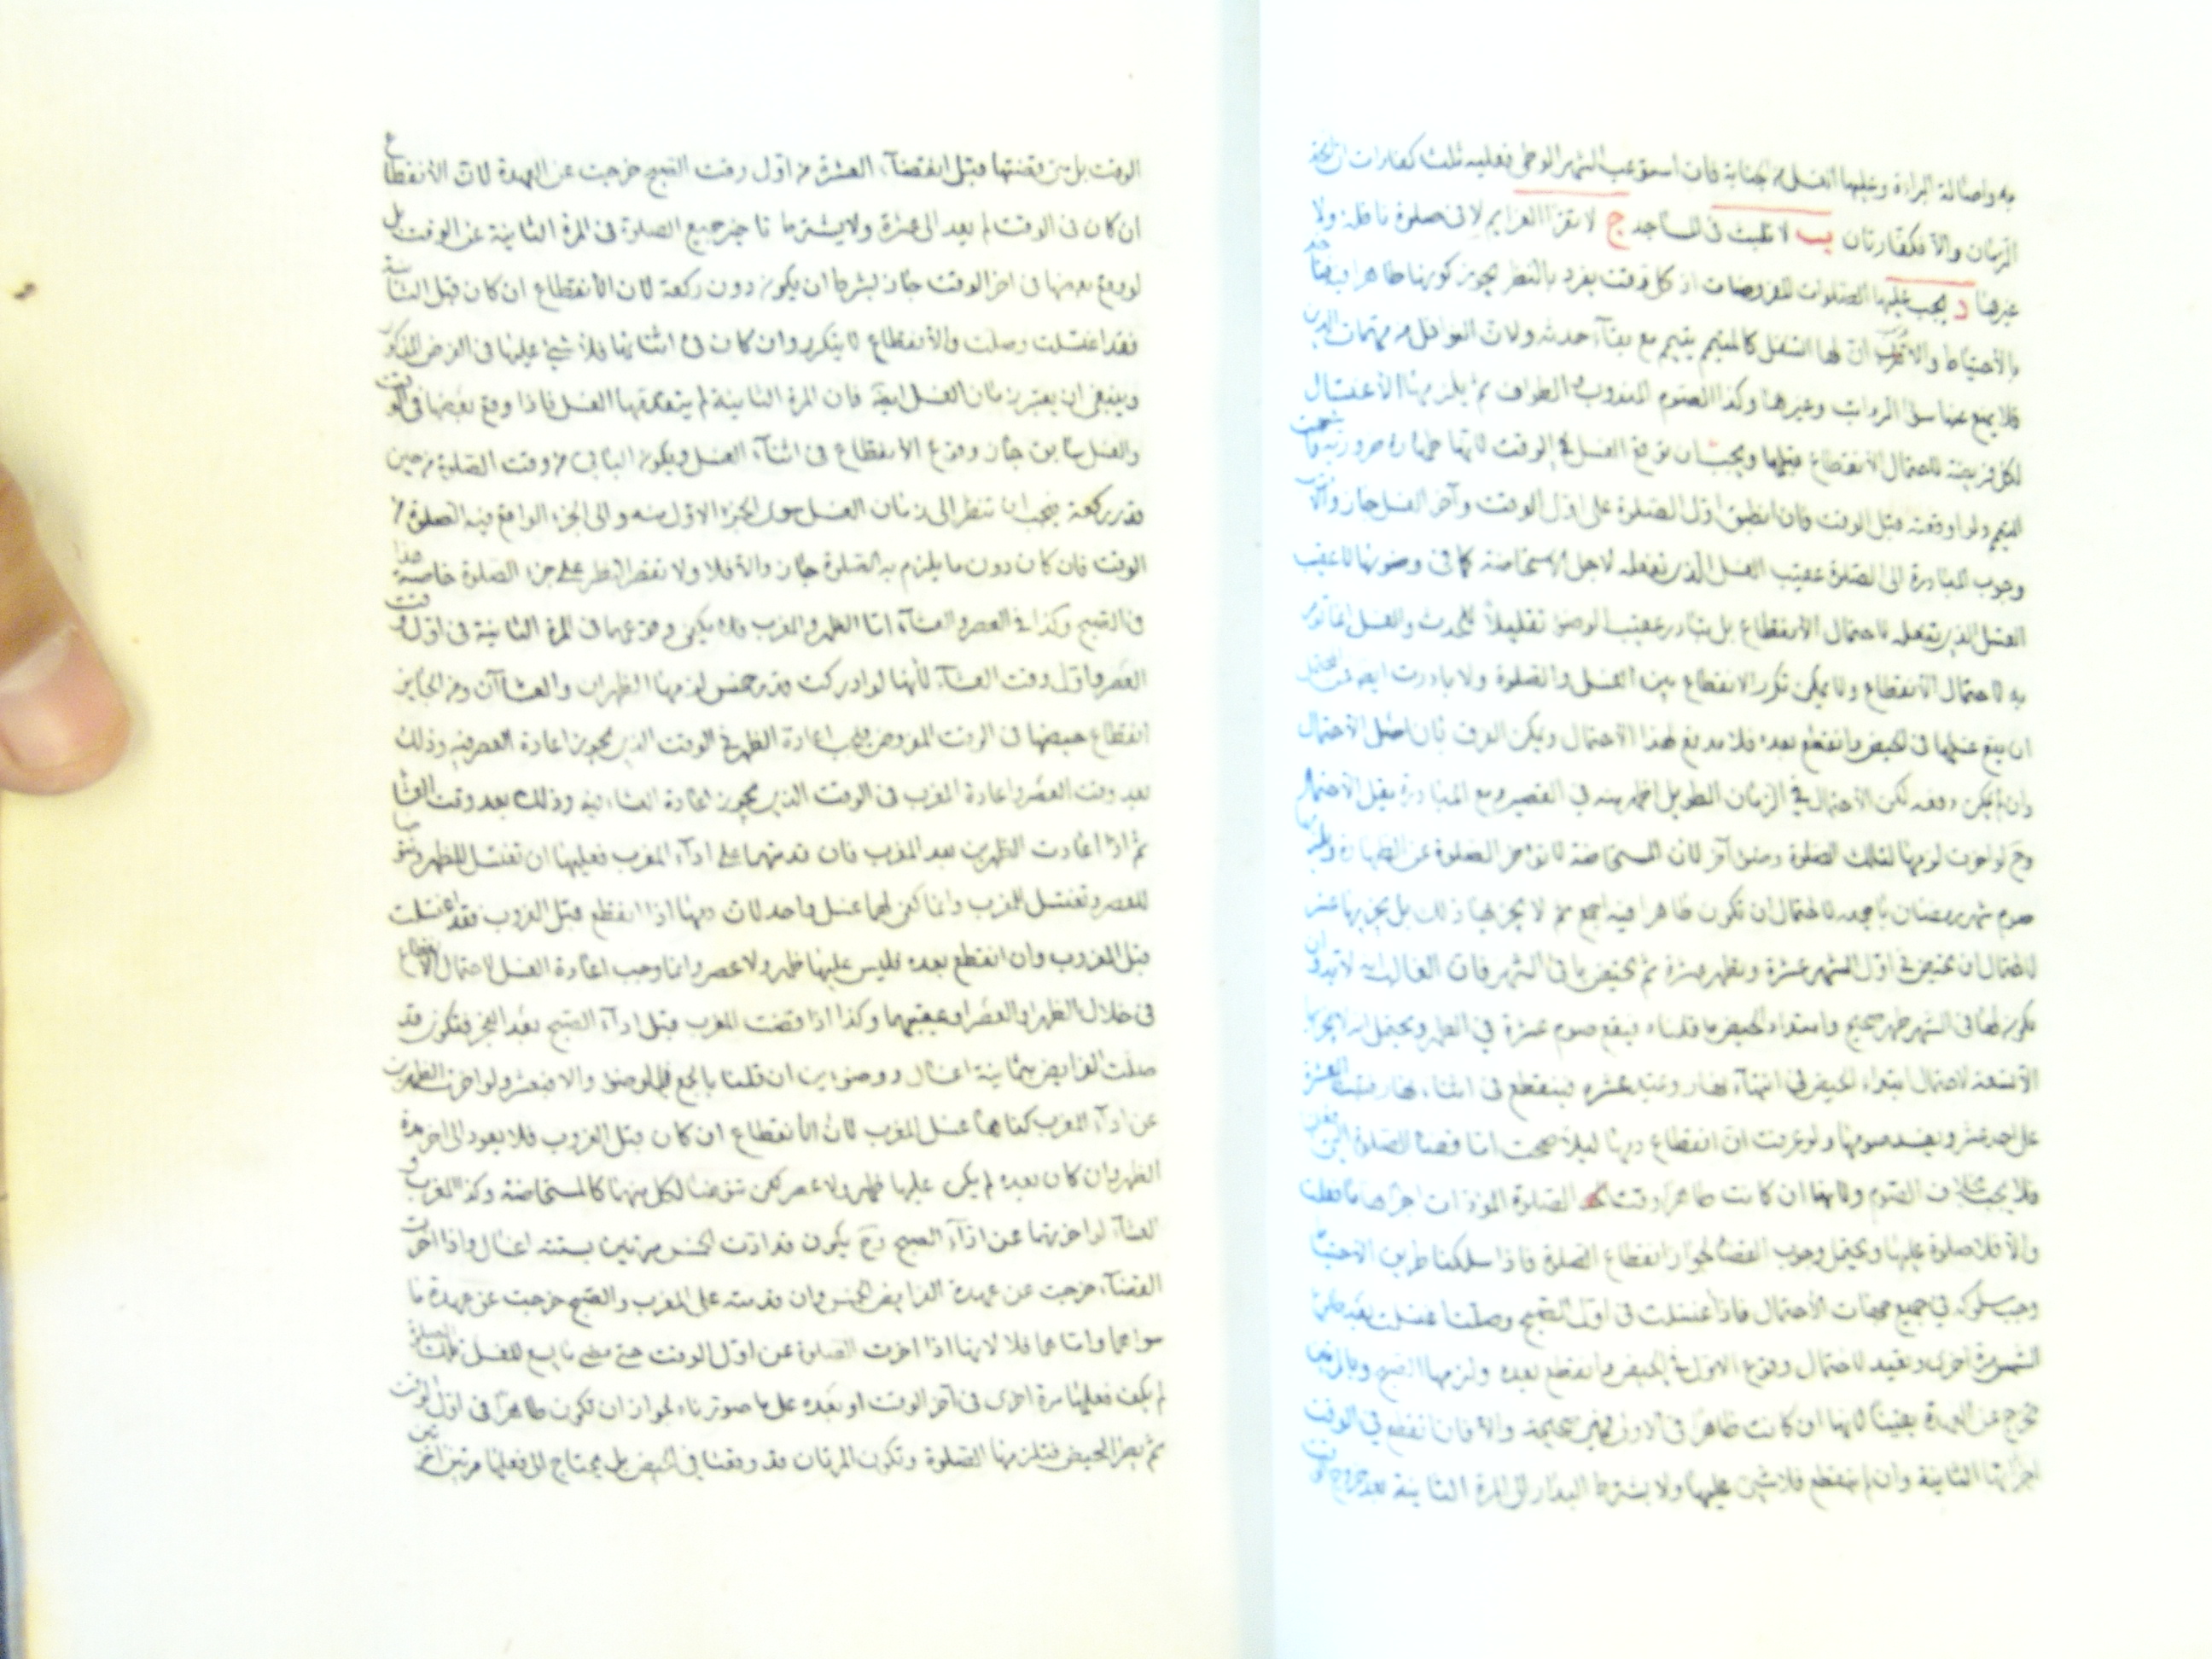 به واصالة البراءة وعليها الغسل من الجنابة فان استوعب الشهر الوطى فعليه ثلث كفارات ان اتحد
الزمان والا فكفارتان ب لا تلبث في المساجد ج لا تقرأ العزايم لا في صلوة نافلة ولا
غيرها د يجب عليها الصلوات المفروضات اذ كل وقت يفرد بالنظر يجوز كونها طاهرا فيه
بالاحتياط والاقرب ان لها التنفل كالمتيمم يتيمم مع بقاء حدثه ولان النوافل من مهمات الدين
فلا يمنع عنها سواء الرواتب وغيرها وكذا الصوم المندوب والطواف ثم يلزمها الاغتسال
لكل فريضة لاحتمال الانقطاع قبلها ويجب ان توقع الغسل في الوقت لانها طهارة ضرورية
التيمم ولو اوقعته قبل الوقت فان انطبق اول الصلوة على اول الوقت وآخر الغسل جاز والاقرب
وجوب المبادرة الى الصلوة عقيب الغسل الذي تفعله لاجل الاستحاضة كما في وضوئها لا عقيب
الغسل الذي تفعله لاحتمال الانقطاع بل تبادر عقيب الوضوء تقليلا للحدث والغسل انما تؤمر
به لاحتمال الانقطاع ولا يمكن تكرر الانقطاع بين الغسل والصلوة ولا بادرت ايضا
ان يقع غسلها في الحيض وانقطع بعده فلا مدفع لهذا الاحتمال ويمكن الفرق بان اصل الاحتمال
وان لم يمكن دفعه لكن الاحتمال في الزمان الطويل اظهر منه في القصير ومع المبادرة يقل الاحتمال
وح لو اخرت لزمها لتلك الصلوة وضوء آخر لان المستحاضة لا تؤخر الصلوة عن الطهارة ويلزمها
صوم شهر رمضان باجمعه لاحتمال ان تكون طاهرا فيه اجمع ثم لا يجزيها ذلك بل يجزيها عشر
لاحتمال ان تحيض في اول الشهر عشرة وتطهر عشرة ثم تحيض باقي الشهر فان الغالب انه لا بد وان
يكون لها في الشهر طهر صحيح وامتداد الحيض ما قلناه فيقع صوم عشرة في الطهر ويحتمل انه لا يجزيها
الا تسعة لاحتمال ابتداء الحيض في اثناء نهار وتمتد عشرة فينقطع في اثناء نهار فيثبت العشرة
على احد عشر ويفسد صومها ولو عرفت ان انقطاع دمها ليلا صحت اما قضاء الصلوة
فلا يجب بخلاف الصوم ولانها ان كانت طاهرا وقت الصلوة المؤداة اجزأها ما فعلت
والا فلا صلوة عليها ويحتمل وجوب القضاء لجواز انقطاع الصلوة فاذا سلكنا طريق الاحتياط
وجب سلوكه في جميع جهات الاحتمال فاذا اغتسلت في اول الصبح وصلت اغتسلت بعد طلوع
الشمس مرة اخرى وتعيد لاحتمال وقوع الاول في الحيض وانقطع بعده ولزمها الصبح وبالمرتين
تخرج عن العهدة يقينا لانها ان كانت طاهرا في الاول فهي صحيحة والا فان انقطع في الوقت
اجزأتها الثانية وان لم ينقطع فلا شيء عليها ولا يشترط البدار الى المرة الثانية بعد خروج الوقت
الوقت بل متى قضتها قبل انقضاء العشرة من اول وقت الصبح خرجت عن العهدة لان الانقطاع
ان كان في الوقت لم يعد الى عشرة ولا يشترط تاخير جميع الصلوة في المرة الثانية عن الوقت بل
لو وقع بعضها في اخر الوقت جاز بشرط ان يكون دون ركعة لان الانقطاع ان كان قبل الثانية
فقد اغتسلت وصلت والانقطاع لا يتكرر وان كان في اثنائها فلا شيء عليها في الفرض المذكور
وينبغي ان يعتبر زمان الغسل ايضا فان المرة الثانية لم يتقدمها الغسل فاذا وقع بعضها في الوقت
والغسل سابق جاز وقوع الانقطاع في اثناء الغسل ويكون الباقي من وقت الصلوة من حين
قدر ركعة فيجب ان تنظر الى زمان الغسل سوى الجزء الاول منه والى الجزء الواقع فيه الصلوة من
الوقت فان كان دون ما يلزم به الصلوة جاز والا فلا ولا نقصر النظر على جزء الصلوة خاصة هذا
في الصبح وكذا في العصر والعشاء اما الظهر والمغرب فلا يكفي وقوعهما في المرة الثانية في اول وقت
العصر واول وقت العشاء لأنها لو ادركت قدر خمس لزمها الظهران والعشاآن ومن الجايز
انقطاع حيضها في الوقت المفروض فيجب اعادة الظهر في الوقت الذي يجوز اعادة العصر فيه وذلك
بعد وقت العصر واعادة المغرب في الوقت الذي يجوز اعادة العشاء فيه وذلك بعد وقت العشاء
ثم اذا اعادت الظهرين بعد المغرب فان قدمتهما على اداء المغرب فعليها ان تغتسل للظهر وتتوضأ
للعصر وتغتسل للمغرب وانما كفى لهما غسل واحد لان دمها اذا انقطع قبل الغروب فقد اغتسلت
قبل الغروب وان انقطع بعده فليس عليها ظهر ولا عصر وانما وجب اعادة الغسل لاحتمال الانقطاع
في خلال الظهر او العصر او عقيبهما وكذا اذا قضت المغرب قبل اداء الصبح بعد الفجر فتكون قد
صلت الفرايض بثمانية اغسال ووضوئين ان قلنا بالجمع والا فبعشر ولو اخرت الظهرين
عن اداء المغرب كفاهما غسل المغرب لان الانقطاع ان كان قبل الغروب فلا يعود الى اخر مدة
الطهر وان كان بعده لم يكن عليها ظهر ولا عصر لكن تتوضأ لكل منهما كالمستحاضة وكذا المغرب و
العشاء لو اخرتهما عن اداء الصبح وح يكون قد ادت الخمس مرتين بستة اغسال واذا اخرت
القضاء خرجت عن عهدة الفرايض الخمس وان قدمته على المغرب والصبح خرجت عن عهدة ما
سواهما واما هما فلا لانها اذا اخرت الصلوة عن اول الوقت حتى مضى ما يسع للغسل والصلوة
لم يكف فعليها مرة اخرى في آخر الوقت او بعده على ما صورناه لجواز ان تكون طاهرا في اول الوقت
ثم يطرأ الحيض فتلزمها الصلوة وتكون المرتان قد وقعتا في الحيض بل يحتاج الى فعلها مرتين